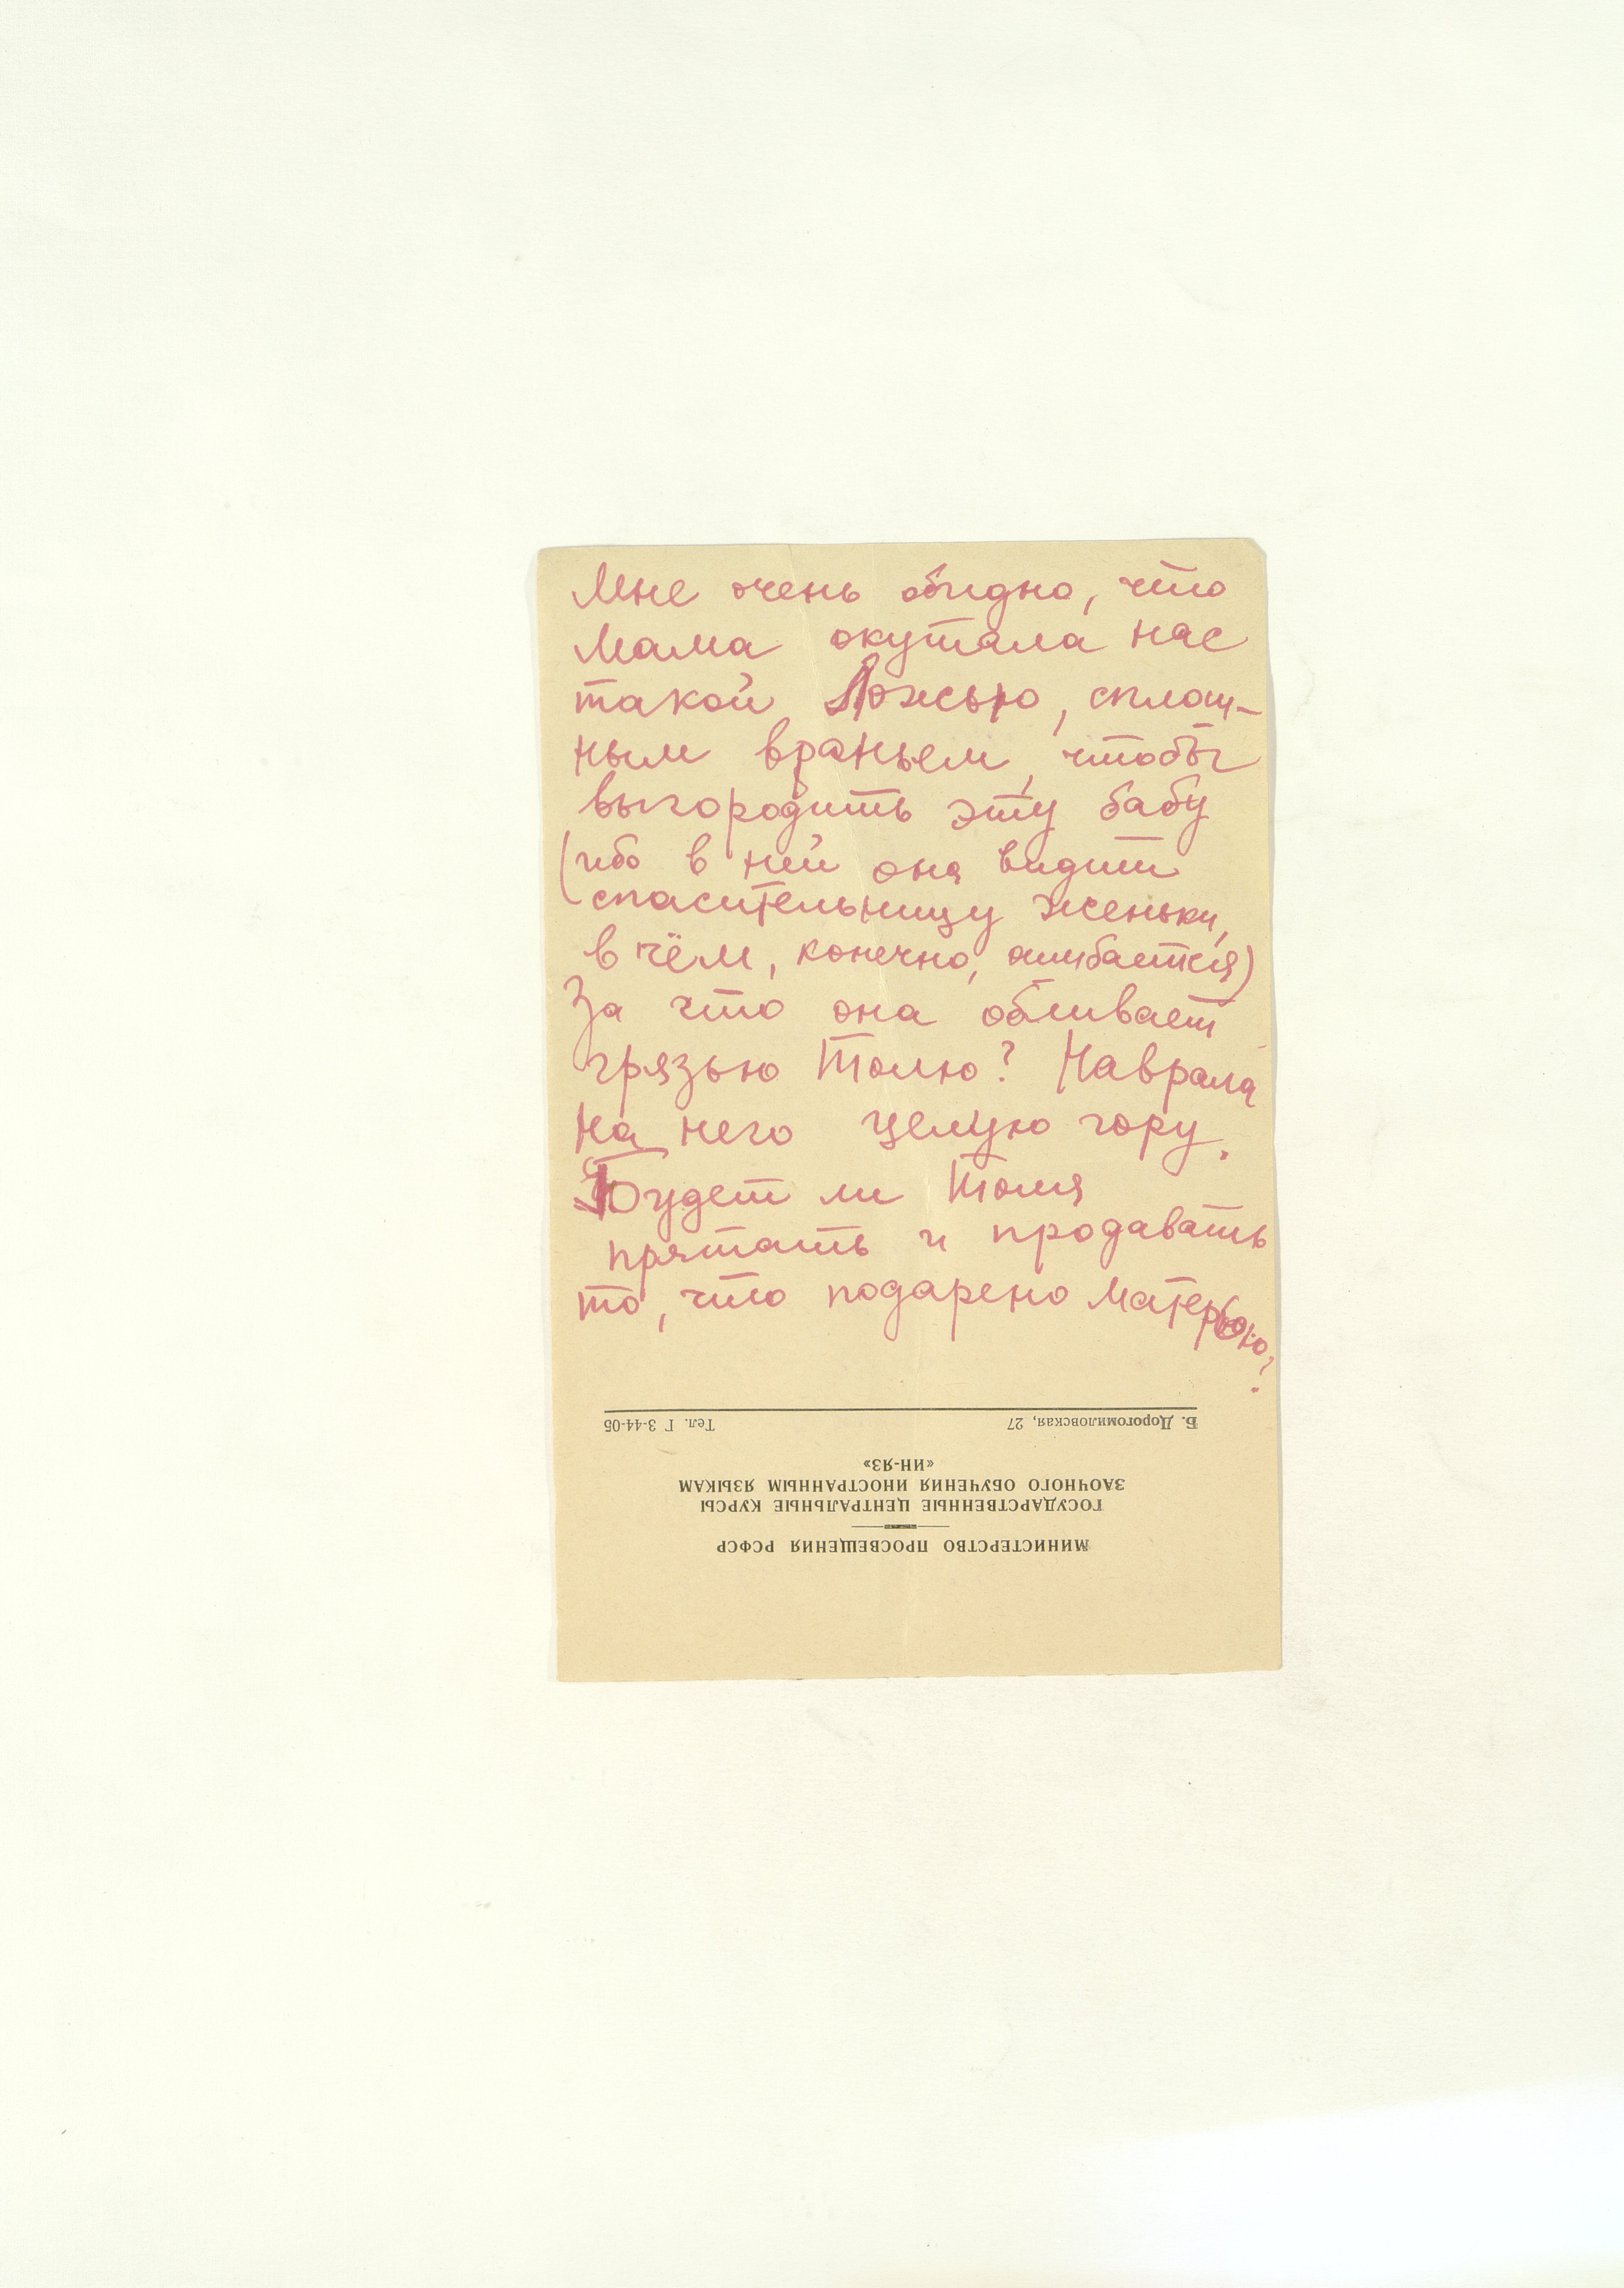 Мне очень обидно, что
мама окутала нас
такой ложью, сплош-
ным враньем, чтобы
выгородить эту бабу
(ибо в ней она видит
спасительницу Женьки,
в чём, конечно, ошибается)
За что она обливает
грязью Толю? Наврала
на него целую гору.
Будет ли Толя
прятать и продавать
то, что подарено матерью?
МИНИСТЕРСТВО ПРОСВЕЩЕНИЯ РСФСР
ГОСУДАРСТВЕННЫЕ ЦЕНТРАЛЬНЫЕ КУРСЫ
ЗАОЧНОГО ОБУЧЕНИЯ ИНОСТРАННЫМ ЯЗЫКАМ
«ИН-ЯЗ»
Б. Дорогомиловская, 27 Тел. Г 3-44-05